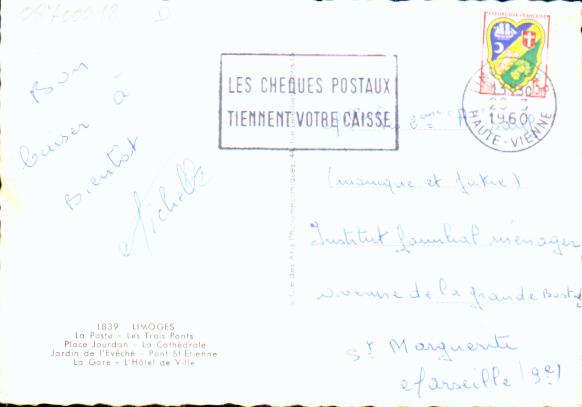 05700918 D
Bon
baiser à
Bientôt
Michelle
1839 LIMOGES
La Poste - Les Trois Ponts
Place Jourdan - La Cathédrale
Jardin de l'Evêché - Pont St-Etienne
La Gare - L'Hôtel de Ville
LES CHEQUES POSTAUX
TIENNENT VOTRE CAISSE
REPUBLIQUE FRANÇAISE
1960
HAUTE-VIENNE
(manique et Jakie)
Institut familial ménager
avenue de la grande Bastide
St Marguerite
Marseille (9e)